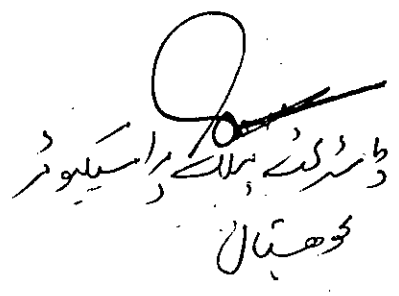 ڈسٹرکٹ پبلک پراسیکیوٹر
کوھستان